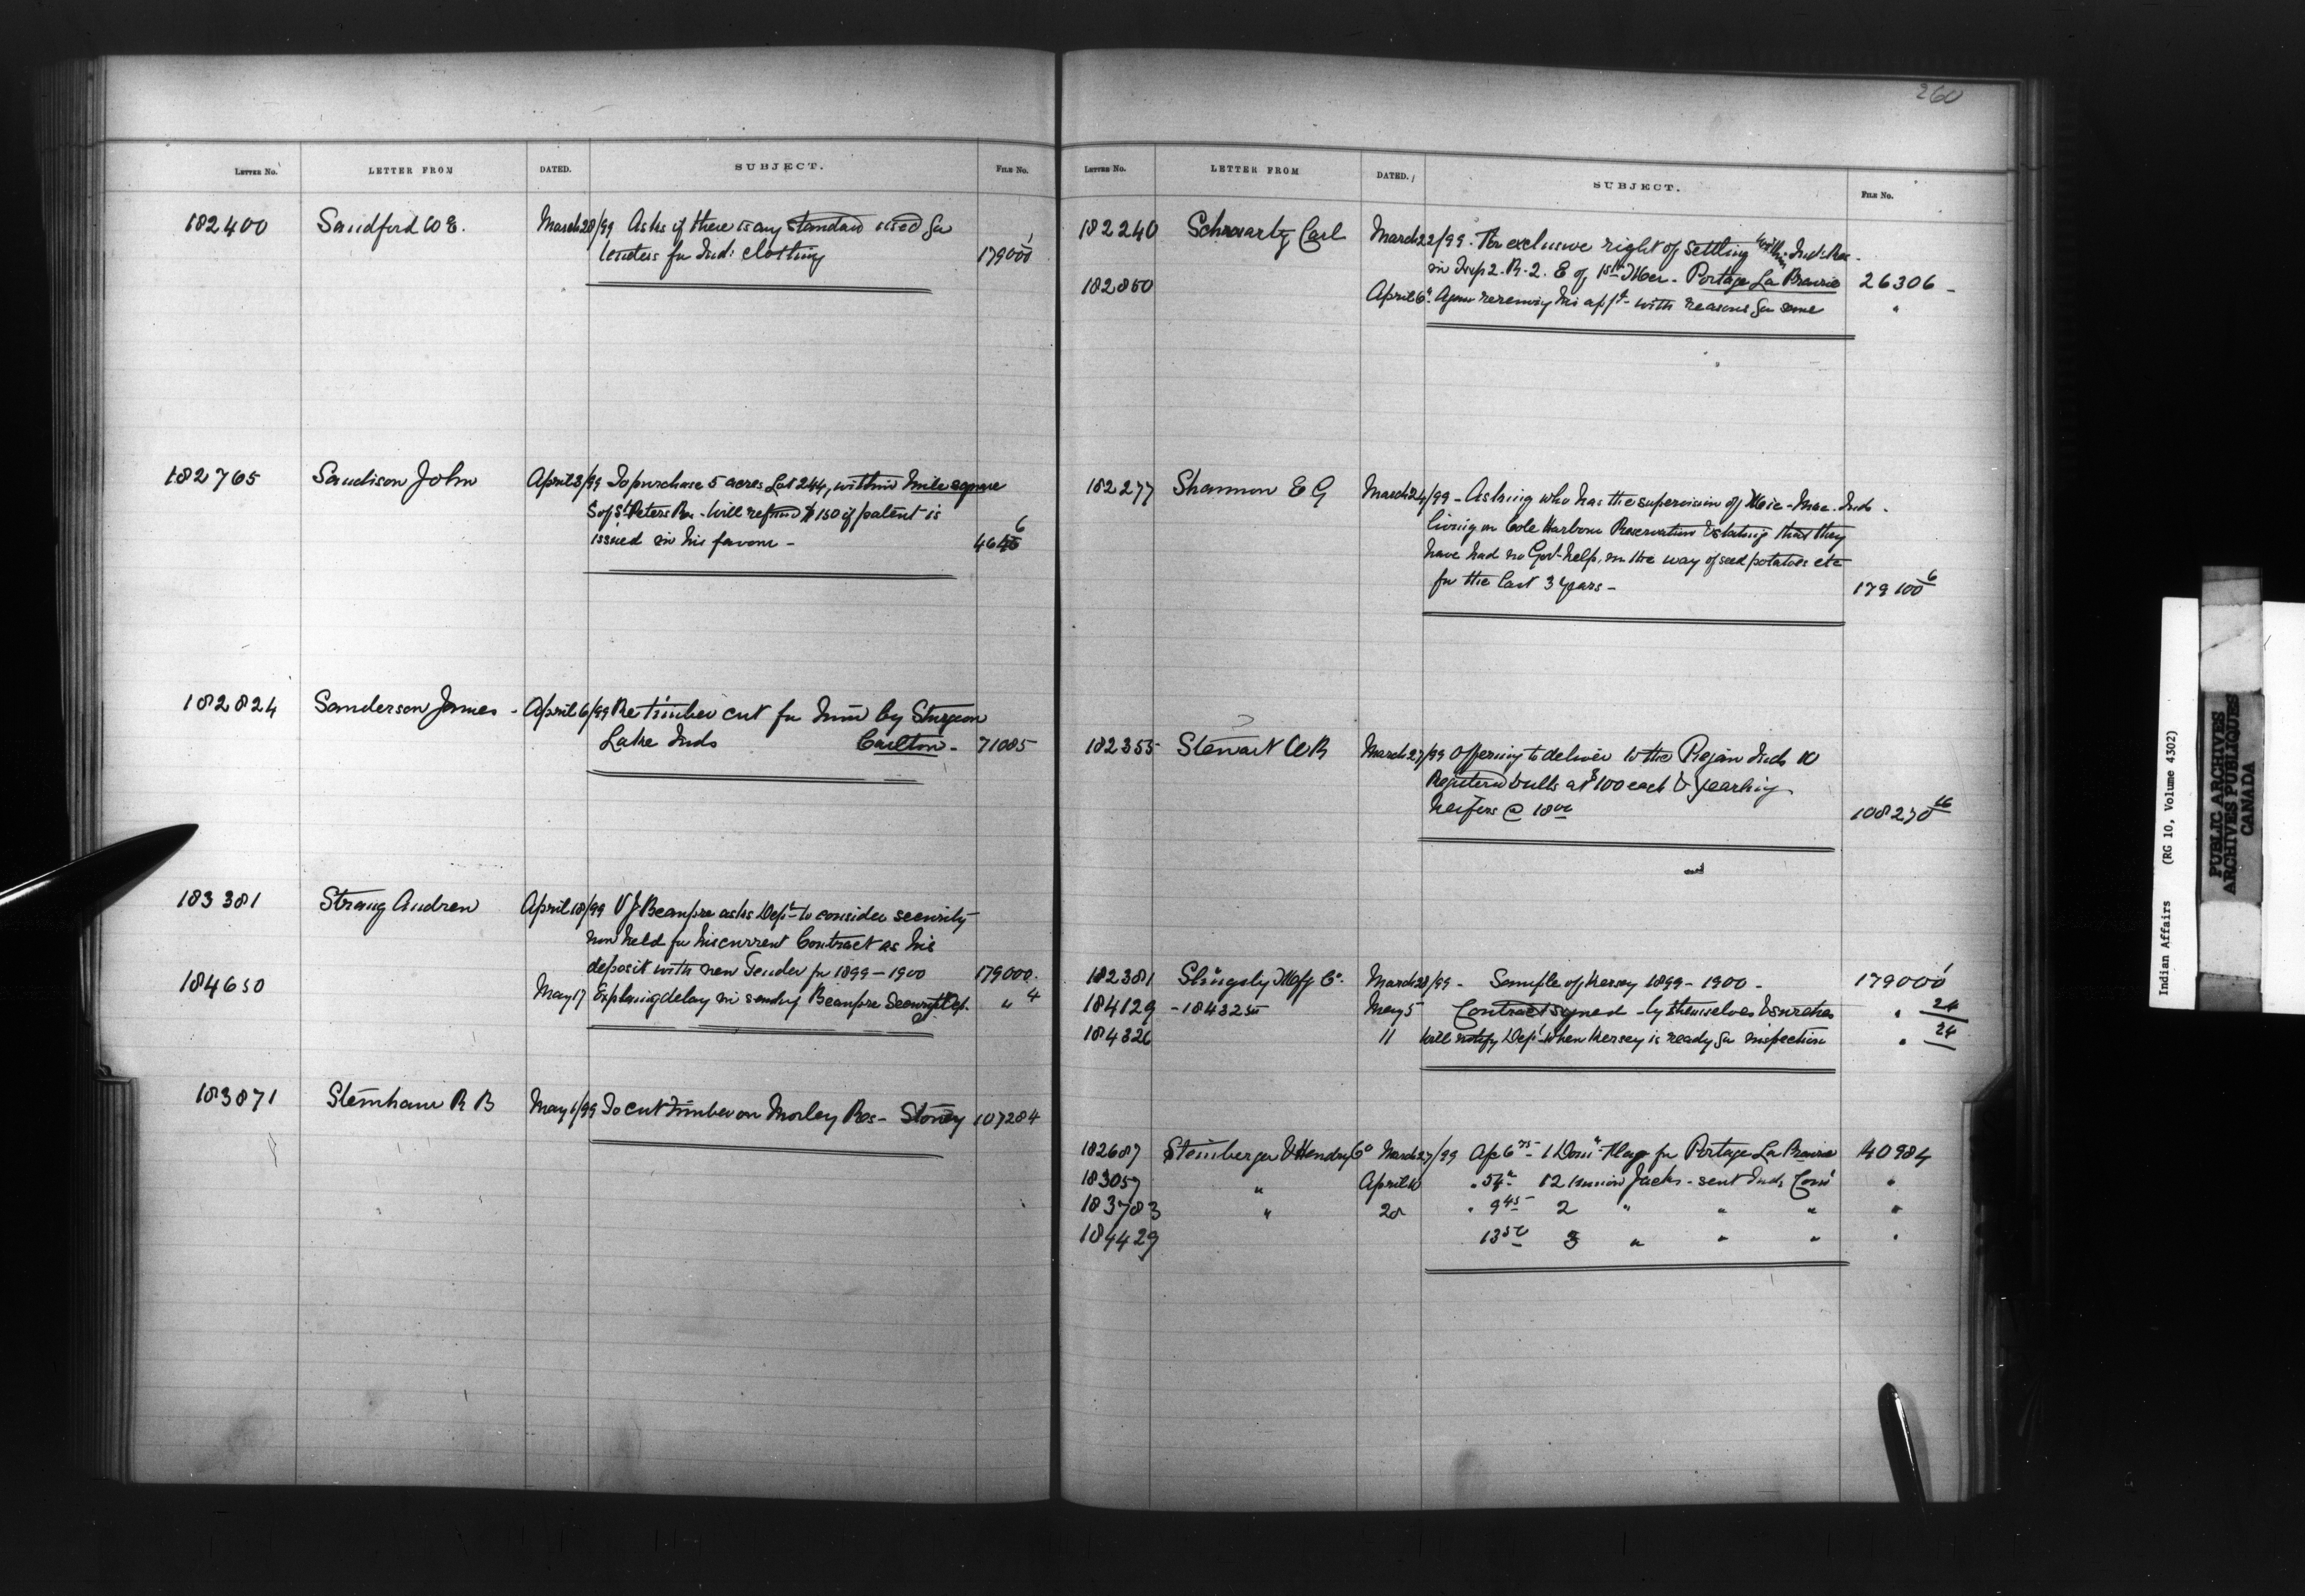 LETTER No. LETTER FROM DATED. SUBJECT. FILE No.
182400 Sandford W E. March 28/99 Asks if there is any standard used for
tenders for Ind: clothing 179000 1
182765 Sandison John April 3/99 To purchase 5 acres Lot 244, within mile square
S of St Peters Res - Will refund $150 if patent is
issued in his favour -
182824 Sanderson James - April 6/99 Re timber cut for him by Sturgeon
Lake Inds Carlton - 71085
183381 Strang Andrew April 18/99 V J Beaupre asks Dept to consider security
now held for his current Contract as his
deposit with new Tender for 1899-1900 179000.
184650 May 17 Explaining delay in sending Beaupre Security Dep. " 4
183871 Stemhaur R B May 1/99 To cut timber on Morley Res - Stoney 107284
260
LETTER No. LETTER FROM DATED. SUBJECT. FILE No.
182240 Schwartz Carl March 22/99. For exclusive right of settling within Ind: Res -
in Twp 2. R. 2. E of 1st Mer - Portage La Prairie 26306 -
182850 April 6" Again renewing his applt - with reasons for same "
182277 Shannon E G March 24/99 - Asking who has the supervision of Mic-Mac Inds -
living on Cole Harbour Reservation & stating that they
have had no Govt help, in the way of seed potatoes etc
for the last 3 years - 179100 6
182355 Stewart W R March 27/99 Offering to deliver to the Piegan Inds 10
Registered bulls at $100 each & yearling
heifers @ 18 00 108270 16
182381 Slingsby Mfg Co. March 28/99 - Sample of Kersey 1899-1900 - 179000 1
184129 - 184325 May 5 Contract signed - by themselves & sureties " 24
184326 11 Will notify Dept when Kersey is ready for inspection " 24
182687 Steinberger & Hendry Co March 27/99 A/c 6 75 - 1 Domn Flag for Portage La Prairie 40984
183057 " April 10 " 54 - 12 Union Jacks - sent Ind: Comr "
183783 " 28 " 9 45 2 " " " "
184429 13 50 3 " " " "
Indian Affairs (RG 10, Volume 4302)
PUBLIC ARCHIVES
ARCHIVES PUBLIQUES
CANADA